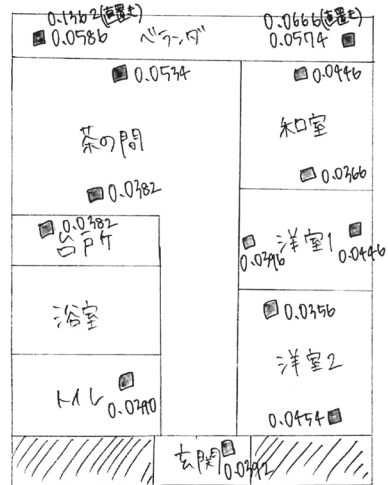 0.1362(直置き)
0.0666(直置き)
0.0586
ベランダ
0.0574
0.0534
0.0446
茶の間
和室
0.0366
0.0382
0.0382
台所
洋室1
0.0396
0.0446
浴室
0.0356
洋室2
トイレ
0.0390
0.0454
玄関
0.0392